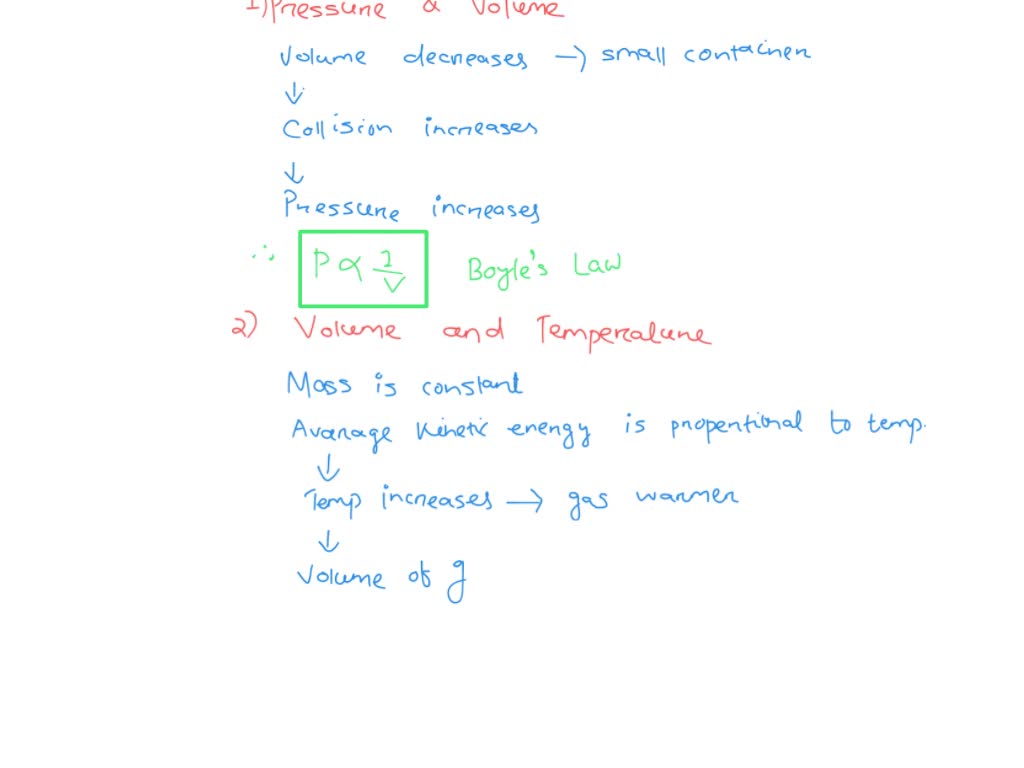 1) Pressure & Volume
Volume decreases → small container
↓
Collision increases
↓
Pressure increases
∴ P ∝ 1/V Boyle's Law
2) Volume and Temperature
Mass is constant
Avarage Kinetic energy is propentional to temp.
↓
Temp increases → gas warmer
↓
Volume of g